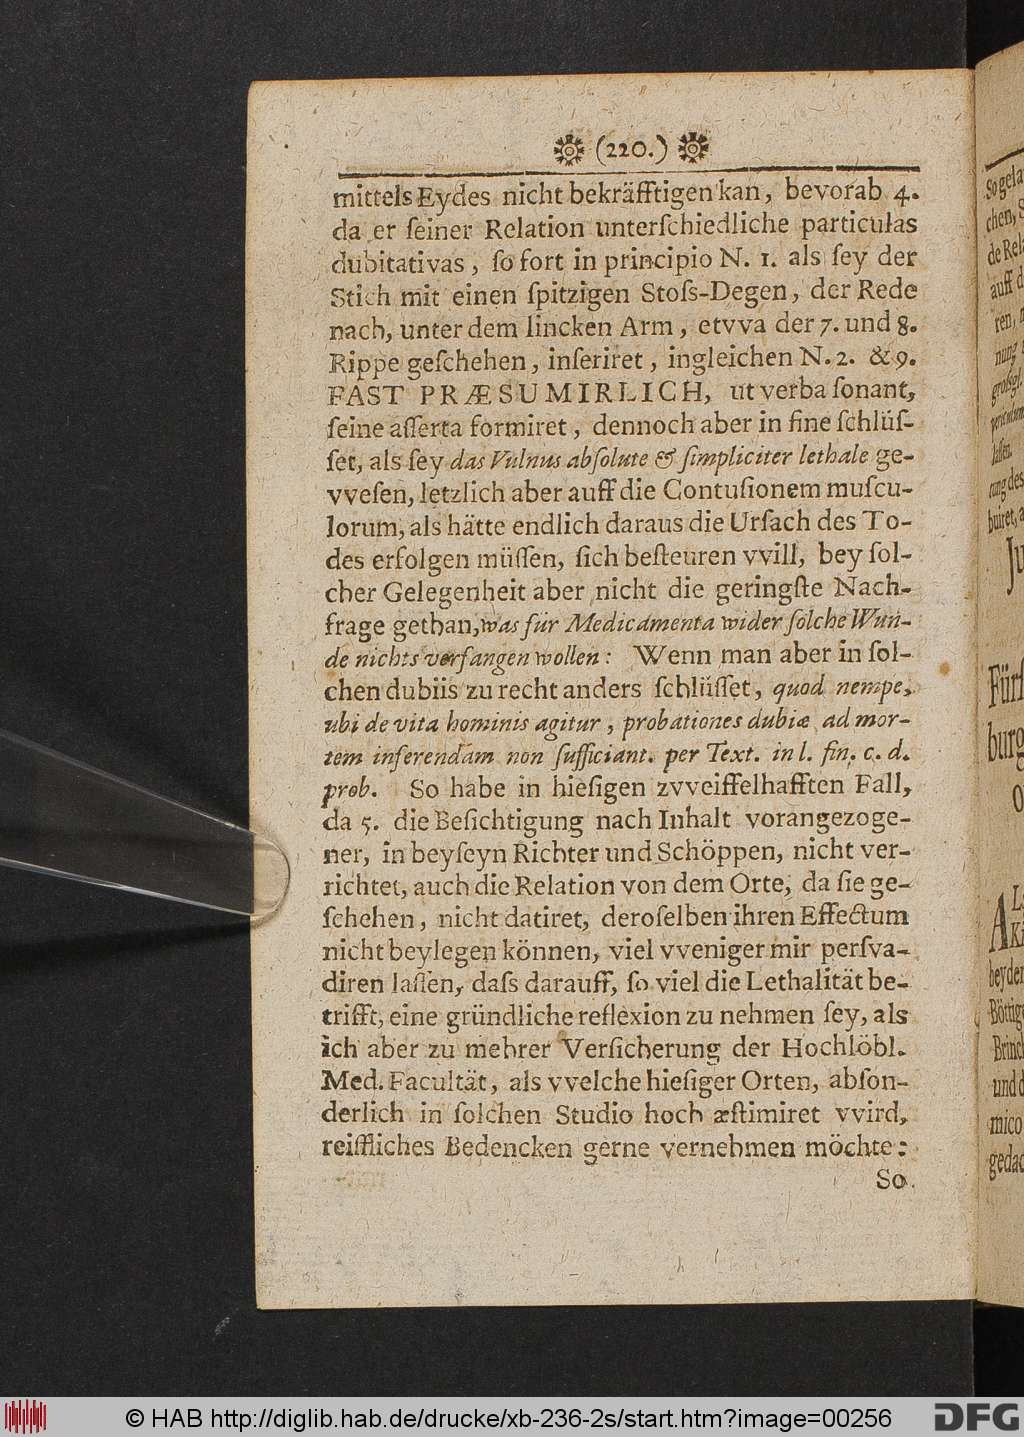 (220.)
mittels Eydes nicht bekräfftigen kan, bevorab 4.
da er ſeiner Relation unterſchiedliche particulas
dubitativas, ſo fort in principio N. 1. als ſey der
Stich mit einen ſpitzigen Stoſs-Degen, der Rede
nach, unter dem lincken Arm, etvva der 7. und 8.
Rippe geſchehen, inſeriret, ingleichen N. 2. & 9.
FAST PRÆSUMIRLICH, ut verba ſonant,
ſeine aſſerta formiret, dennoch aber in fine ſchlüſ-
ſet, als ſey das Vulnus abſolute & ſimpliciter lethale ge-
vveſen, letzlich aber auff die Contuſionem muſcu-
lorum, als hätte endlich daraus die Urſach des To-
des erfolgen müſſen, ſich beſteuren vvill, bey ſol-
cher Gelegenheit aber nicht die geringſte Nach-
frage gethan, was für Medicamenta wider ſolche Wun-
de nichts verfangen wollen: Wenn man aber in ſol-
chen dubiis zu recht anders ſchlüſſet, quod nempe,
ubi de vita hominis agitur, probationes dubiæ ad mor-
tem inferendam non ſufficiant. per Text. in l. fin. c. d.
prob. So habe in hieſigen zvveiffelhafften Fall,
da 5. die Beſichtigung nach Inhalt vorangezoge-
ner, in beyſeyn Richter und Schöppen, nicht ver-
richtet, auch die Relation von dem Orte, da ſie ge-
ſchehen, nicht datiret, deroſelben ihren Effectum
nicht beylegen können, viel vveniger mir perſva-
diren laſſen, daſs darauff, ſo viel die Lethalität be-
trifft, eine gründliche reflexion zu nehmen ſey, als
ich aber zu mehrer Verſicherung der Hochlöbl.
Med. Facultät, als vvelche hieſiger Orten, abſon-
derlich in ſolchen Studio hoch æſtimiret vvird,
reiffliches Bedencken gerne vernehmen möchte:
So
© HAB http://diglib.hab.de/drucke/xb-236-2s/start.htm?image=00256
DFG